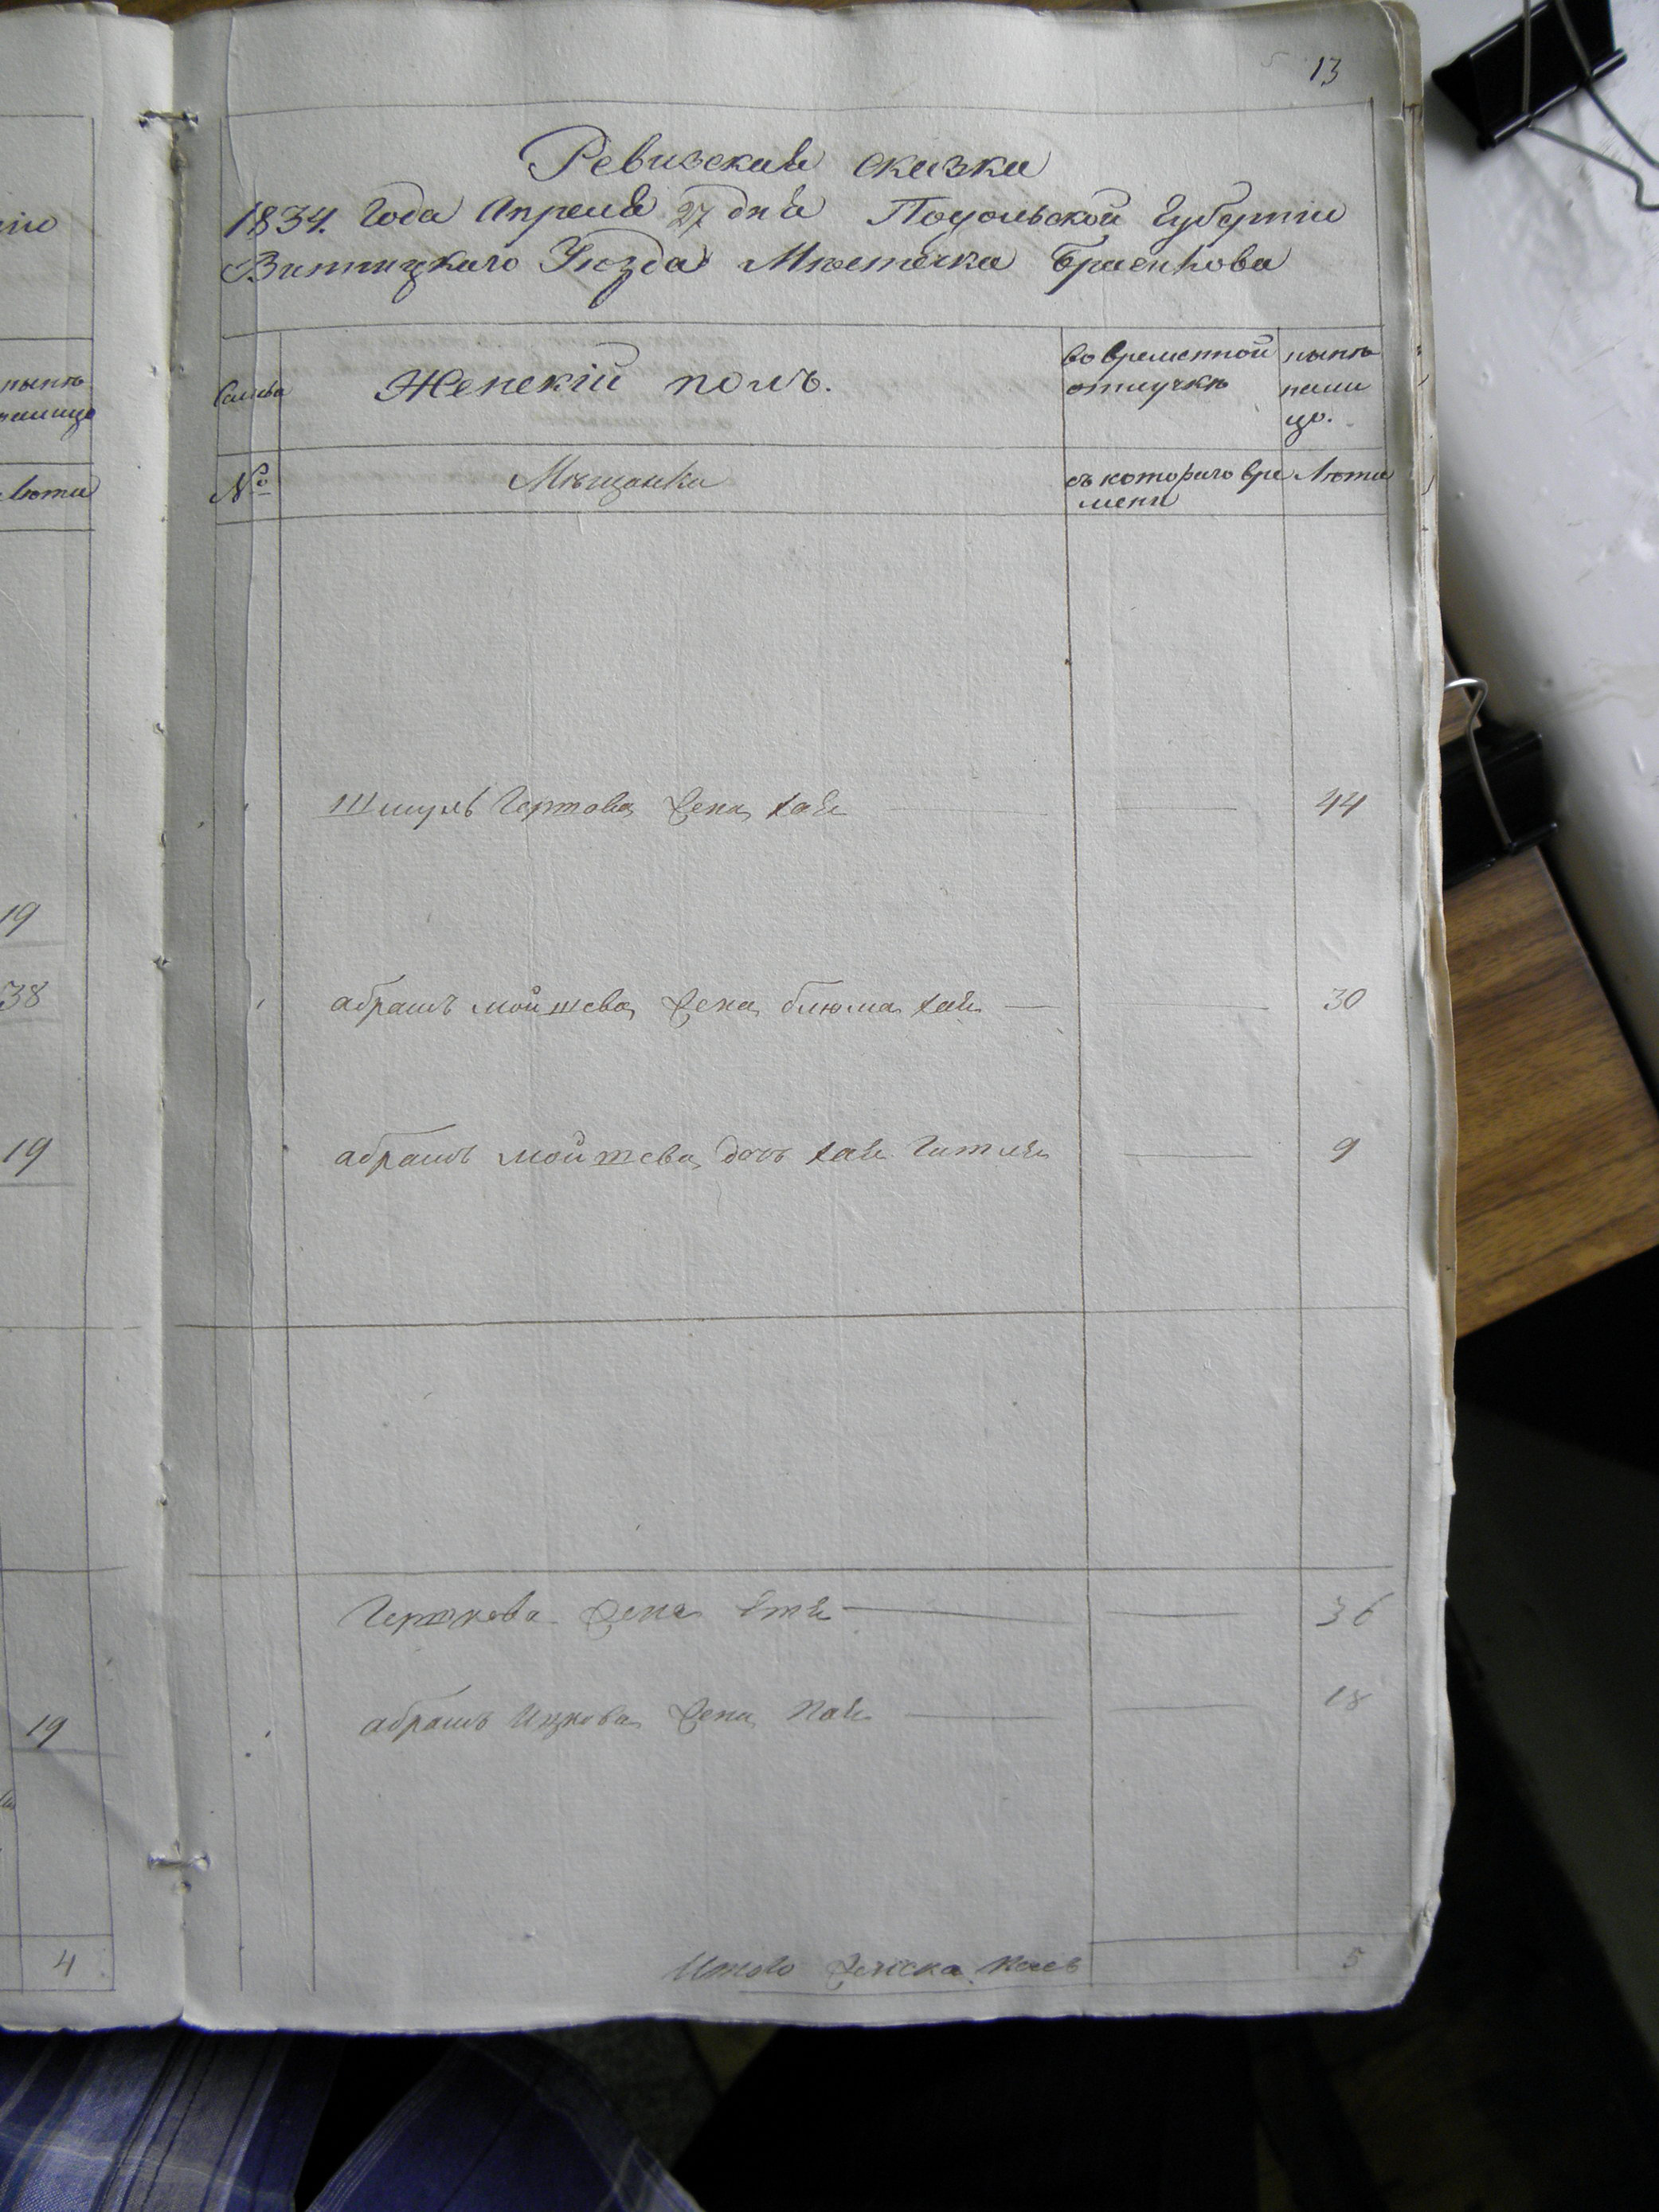 13
Ревизская сказка
1834. Года Апреля 27 дня Подольской Губерніи
Винницкаго Уѣзда Мѣстечка Браилова
Семья
Женскій полъ.
во временной отлучкѣ
нынѣ
нали
цо.
№
Мѣщанки
съ котораго вре
мени
Лѣта
Шмуль Гершова жена хая
44
абрамъ мойшева жена блюма хая
30
абрамъ мойшева дочь хая Гитля
9
Гершкова жена Етя
36
абрамъ Ицкова жена
18
Итого женска
5
нынѣ
налицо
Лѣта
19
38
19
19
4